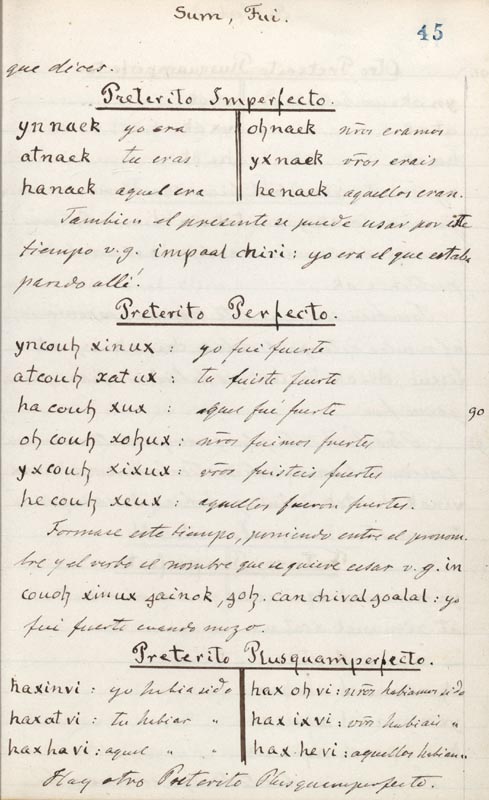 Sum, Fui.
45
que dices.
Preterito Imperfecto.
ynnaek yo era
atnaek tu eras
hanaek aquel era
oꜧnaek nr̃os eramos
yxnaek vr̃os erais
henaek aquellos eran.
Tambien el presente se puede usar por este
tiempo v.g. impaal chiri: yo era el que estaba
parado allí.
Preterito Perfecto.
yncouꜧ xinux yo fui fuerte
atcouꜧ xatux: tu fuiste fuerte
ha couꜧ xux: aquel fué fuerte
90
oꜧ couꜧ xoꜧux: nr̃os fuimos fuertes
yxcouꜧ xixux: vr̃os fuisteis fuertes
he couꜧ xeux: aquellos fueron fuertes.
Formase este tiempo, poniendo entre el pronom-
bre y el verbo el nombre que se quiere usar v.g. in
couoꜧ xinux gainok, goꜧ. can chival goalal: yo
fui fuerte cuando mozo.
Preterito Plusquamperfecto.
haxinvi: yo habia sido
haxatvi: tu habias "
haxhavi: aquel " "
hax oꜧ vi: nr̃os habiamos sido
hax ixvi: vr̃os habiais "
hax hevi: aquellos habian "
Hay otro Preterito Plusquamperfecto.